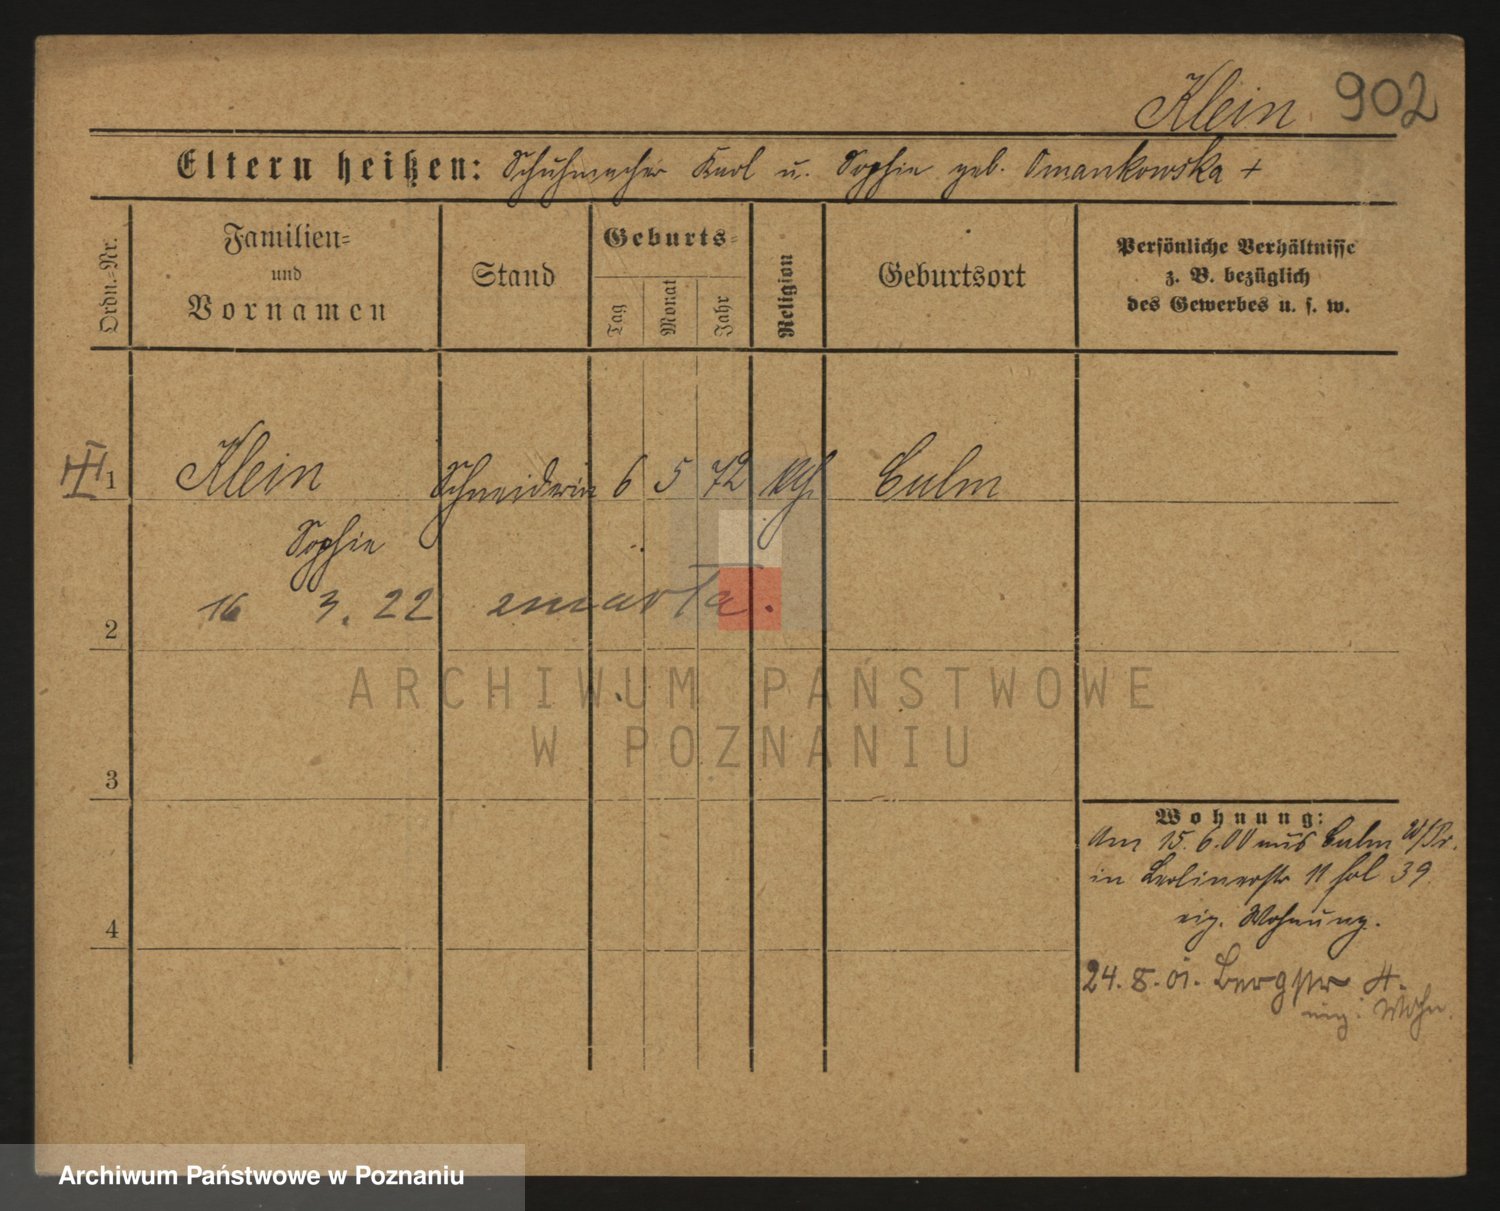 Klein 902
Eltern heißen: Schuhmacher Karl u. Sophie geb. Omankowska +
Ordn.-Nr.
Familien-
und
Vornamen
Stand
Geburts-
Tag
Monat
Jahr
Religion
Geburtsort
Persönliche Verhältnisse
z. B. bezüglich
des Gewerbes u. s. w.
1 Klein Schneiderin 6 5 72 kth. Culm
Sophie
16 3. 22 zmarła.
2
3
4
Wohnung:
Am 15. 6. 00 aus Culm W/Pr.
in Berlinerstr 11 fol 39.
eig. Wohnung.
24. 8. 01. Bergstr 4.
eig. Wohn.
ARCHIWUM PAŃSTWOWE
W POZNANIU
Archiwum Państwowe w Poznaniu